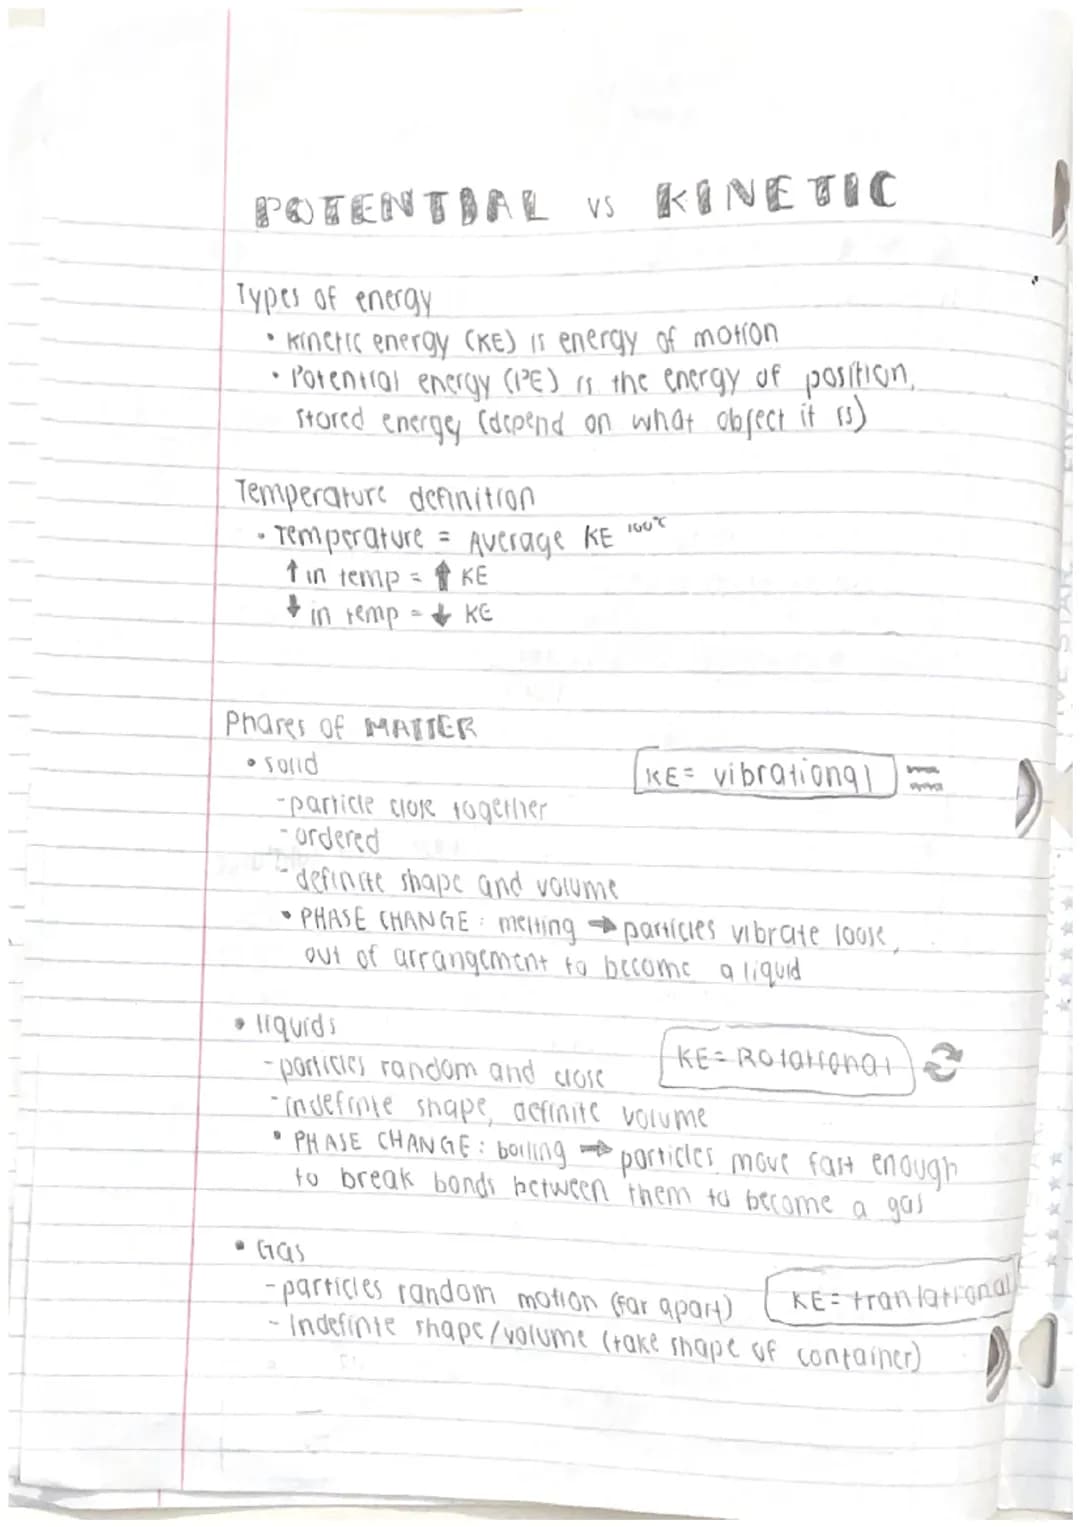 POTENTIAL vs KINETIC
Types of energy
• Kinetic energy (KE) is energy of motion
• Potential energy (PE) is the energy of position,
stored energy (depend on what object it is)
Temperature definition
• Temperature = Average KE 100°C
↑ in temp = ↑ KE
↓ in temp = ↓ KE
Phases of MATTER
• solid
KE = vibrational
- particle close together
- ordered
- definite shape and volume
• PHASE CHANGE: melting → particles vibrate loose,
out of arrangement to become a liquid
• liquids
KE = Rotational
- particles random and close
- indefinite shape, definite volume
• PHASE CHANGE: boiling → particles move fast enough
to break bonds between them to become a gas
• Gas
- particles random motion (far apart)
KE = tranlational
- Indefinte shape/volume (take shape of container)